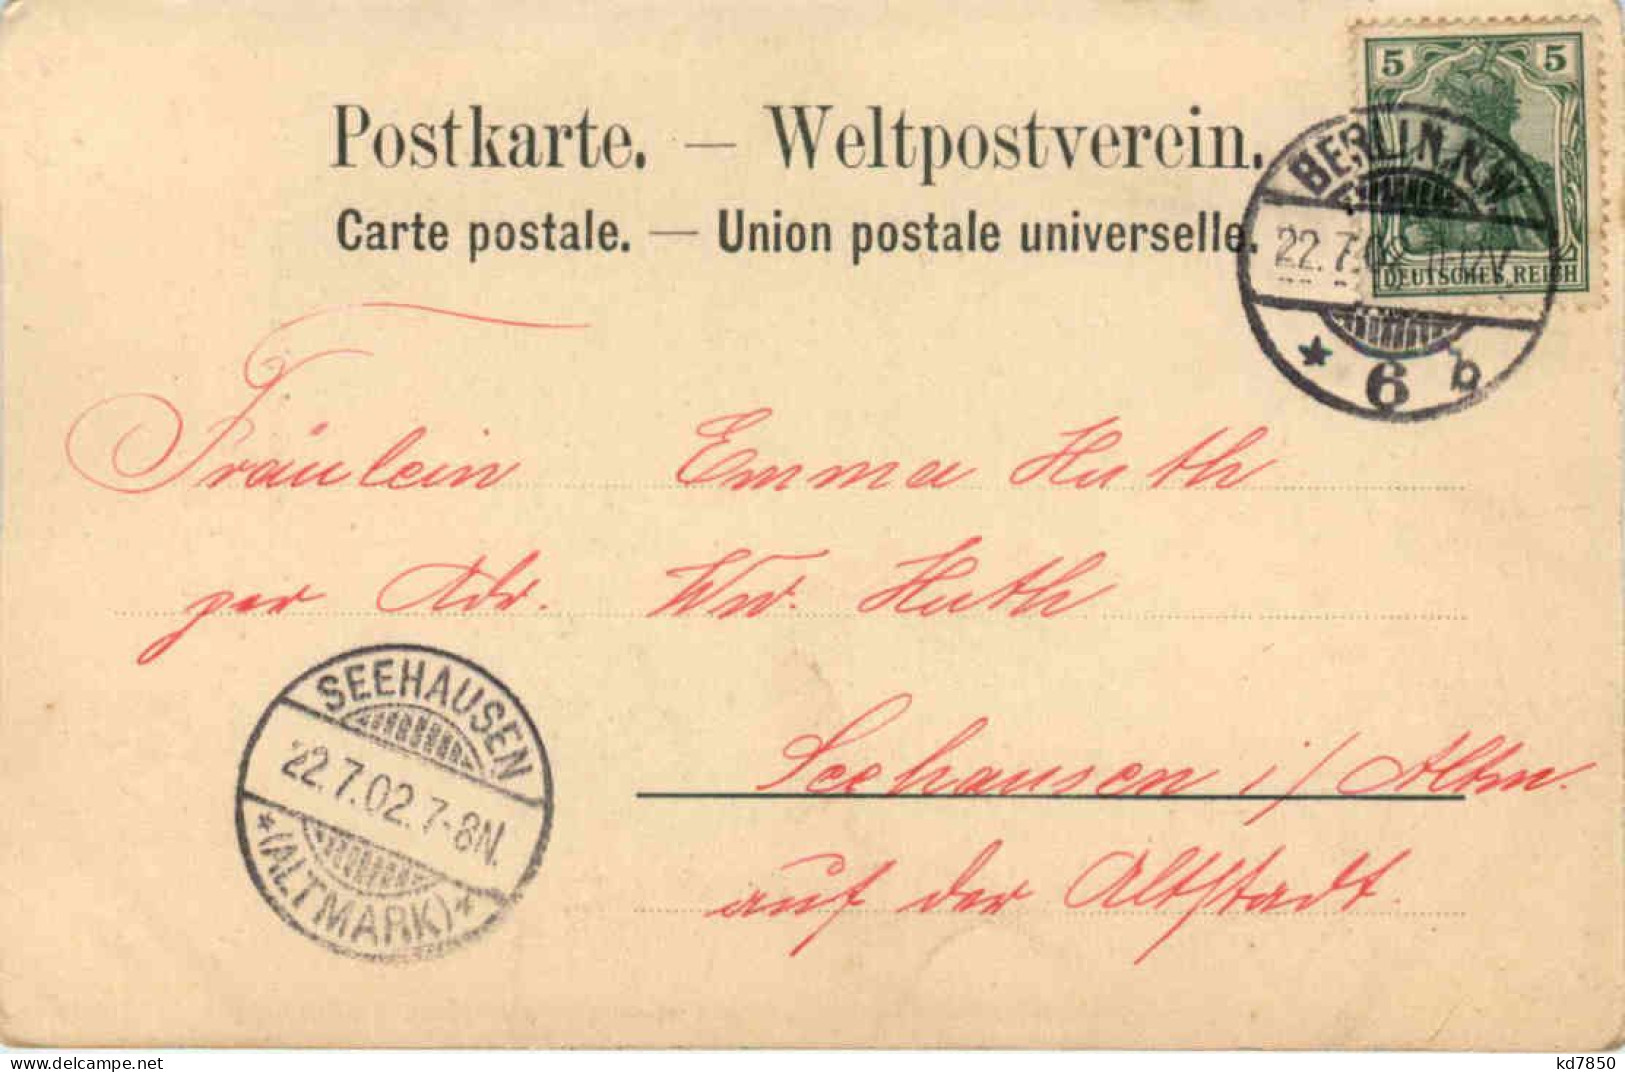 5 5
DEUTSCHES REICH
Postkarte. — Weltpostverein.
Carte postale. — Union postale universelle.
BERLIN.N.W.
22.7.02
* 6 b
Fräulein Emma Huth
per Adr. Ww. Huth
Seehausen i/Altm.
auf der Altstadt.
SEEHAUSEN
22.7.02.7-8N.
*(ALTMARK)*
www.delcampe.net
kd7850